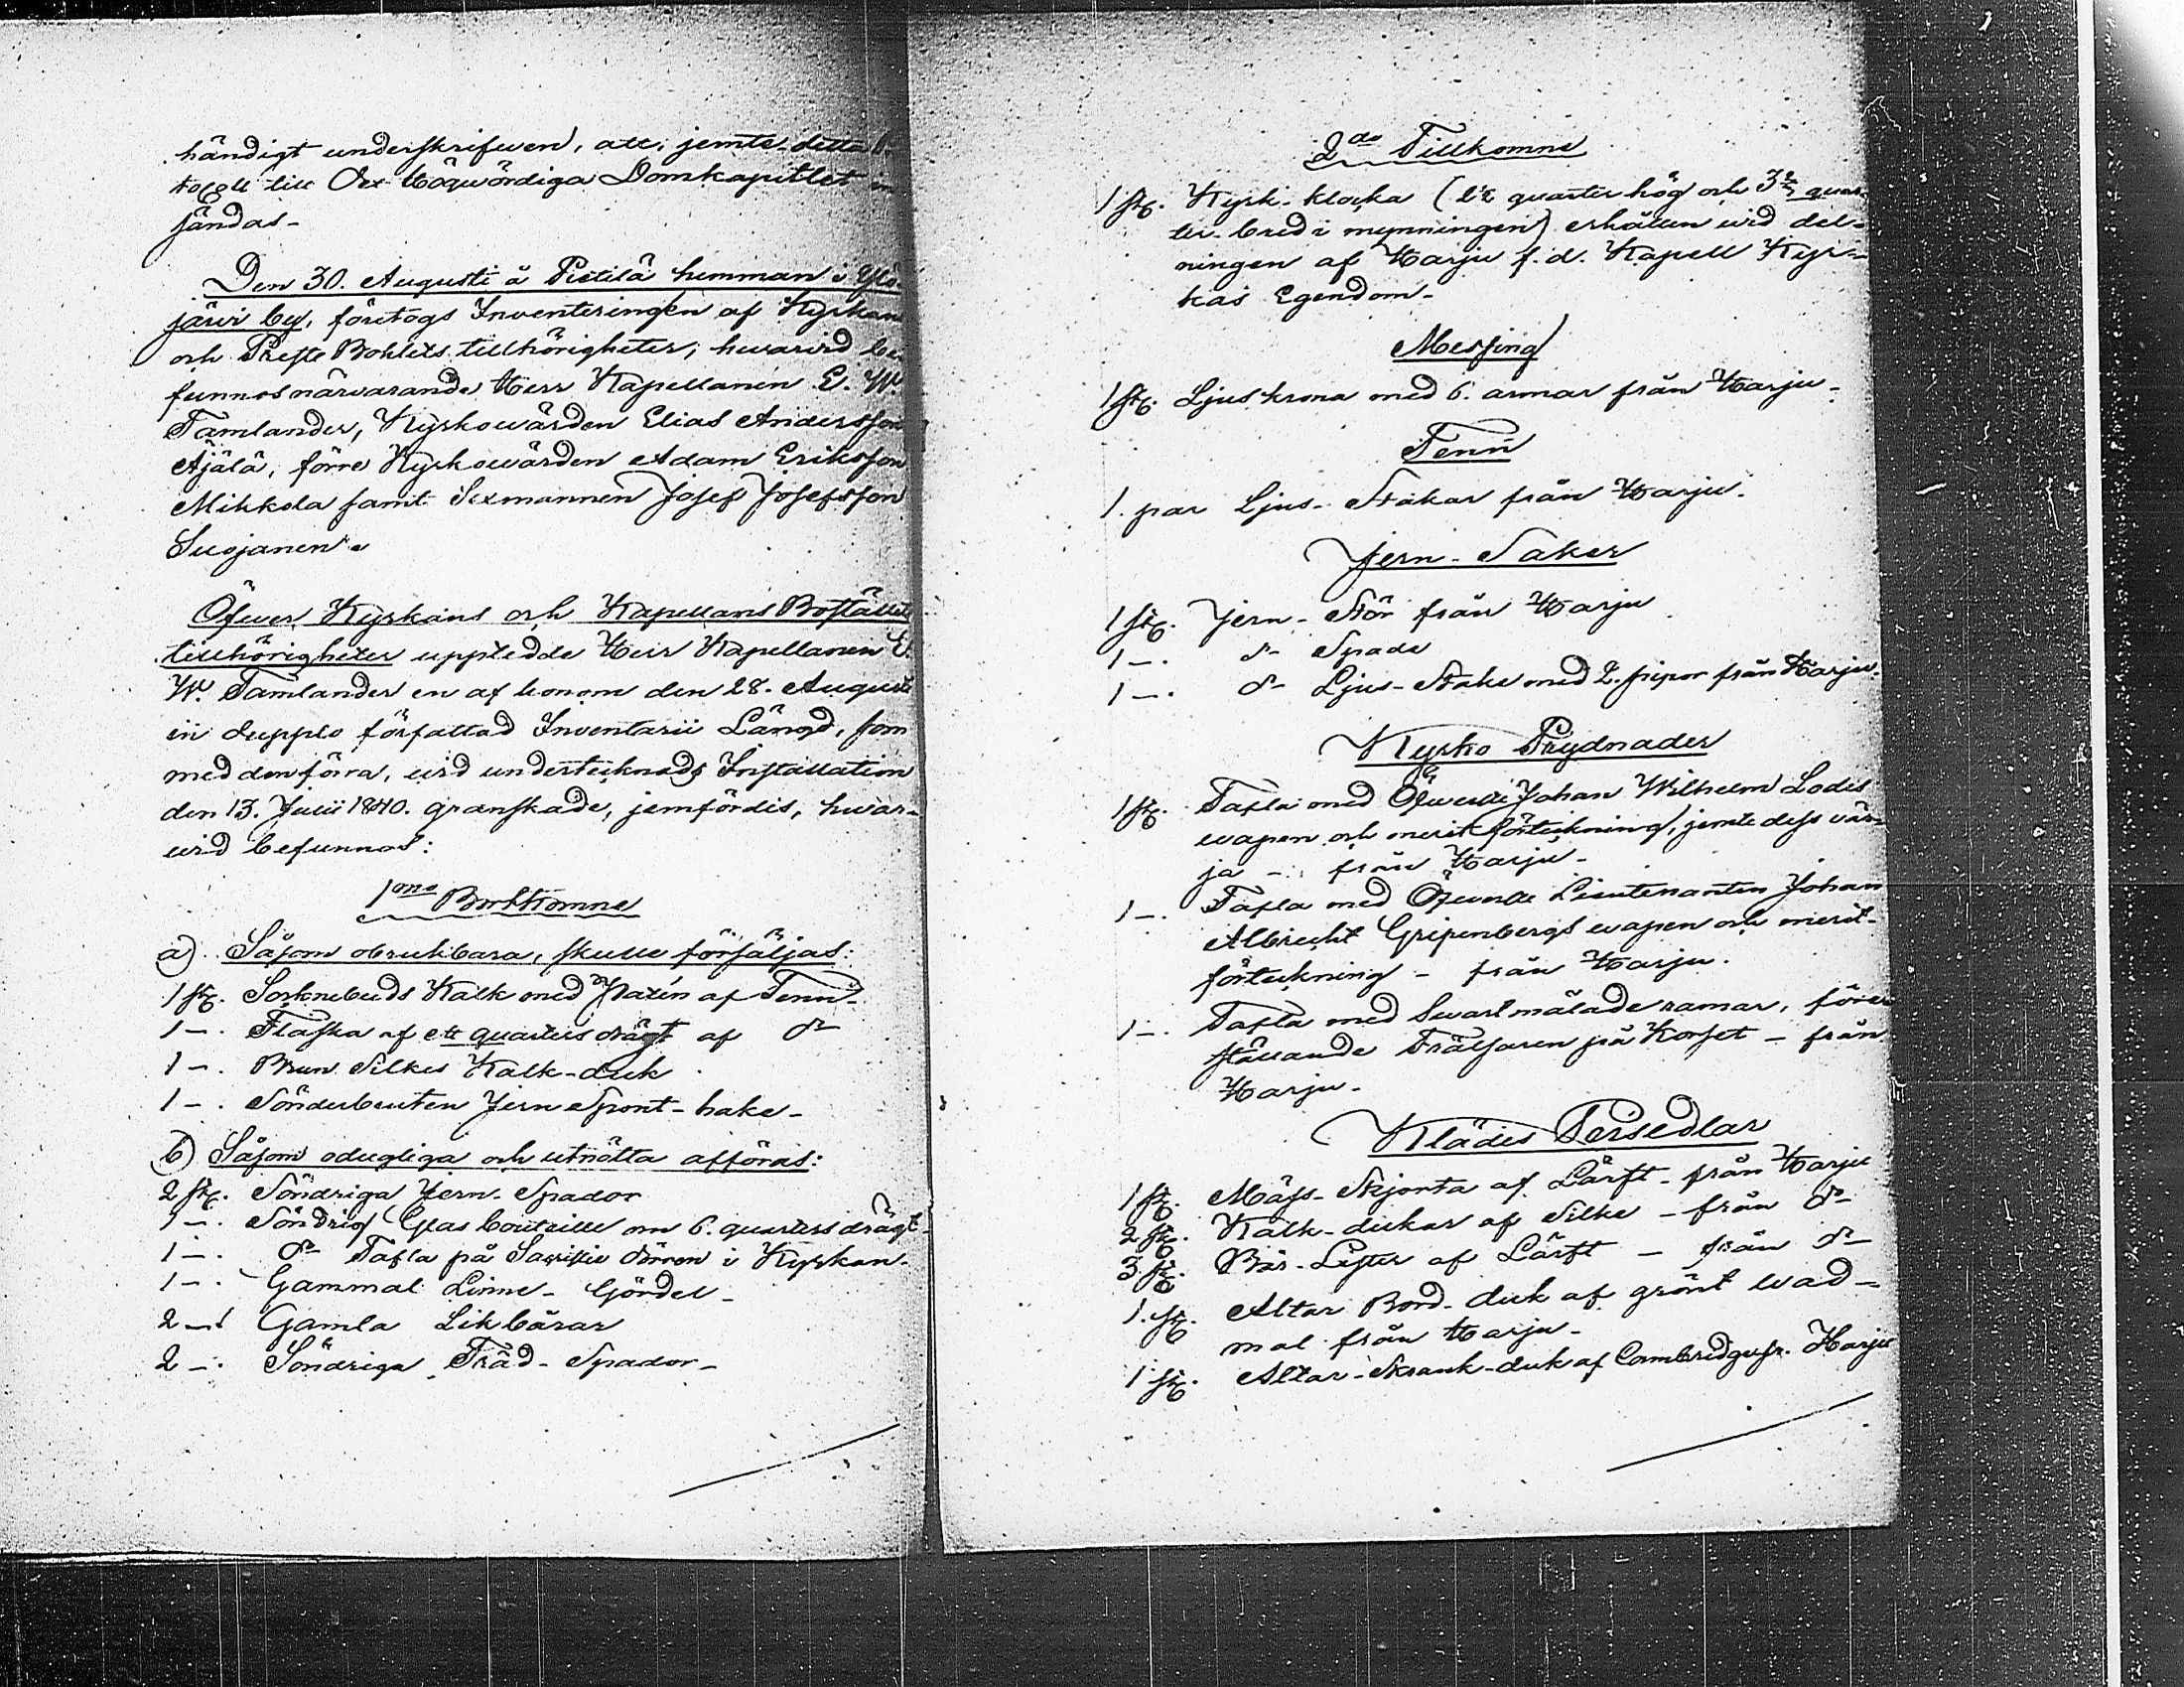 händigt underskrifwen, att, jemte detta
till Det Högwördiga Domkapitlet in
sändas-
Den 30. Augusti å Pietilä hemman i Ylö-
järwi by, företogs Inventeringen af Kyrkans
och Preste Bohlets tillhörigheter; hwarwid be-
funnos närwarande Herr Kapellanen E. W.
Tamlander, Kyrkowärden Elias Andersson
Äjälä, förre Kyrkowärden Adam Eriksson
Mikkola samt Sexmannen Josef Josefsson
Suojanen.
Öfwer Kyrkans och Kapellans Boställets
tillhörigheter uppteddе Herr Kapellanen E.
W. Tamlander en af honom den 28. Augusti
in dupplo författad Inventarii Längd, som
med den förra, wid undertecknads Installation
den 13. Julii 1840. granskade, jemfördes, hwar-
wid befunnos:
1mo Bortkomne
a) Såsom obrukbara, skulle försäljas:
1 st. Socknebuds Kalk med Paten af Tenn-
1 -. Flaska af ett quarters drägt af do
1 -. Brun Silkes Kalk-duk.
1 -. Sönderbruten Jern Spont-hake-
b) Såsom odugliga och utnötta afföras:
2 st. Söndriga Jern-Spador
1 -. Söndrig Glas bouteille om 6. quarters drägt-
1 -. do Tafla på Sacristie dörren i Kyrkan.
1 -. Gammal Linne-Gördel-
2 -. Gamla Likbårar
2 -. Söndriga Träd-Spador-
2do Tillkomne
1 st. Kyrk-klocka ( quarter hög och 3 quar-
ter bred i mynningen) erhållen wid del-
ningen af Harju f.d. Kapell Kyr-
kas Egendom-
Messing
1 st. Ljus krona med 6. armar från Harju-
Tenn
1. par Ljus-Stakar från Harju.
Jern-Saker
1 st. Jern-Stör från Harju
1 -. do Spade
1 -. do Ljus-Stake med 2. pipor från Harju.
Kyrko Prydnader
1 st. Tafla med Öfwerste Johan Wilhelm Lodes
wapen och meritförteckning, jemte dess vär-
ja - från Harju-
1 -. Tafla med Öfwerste Lieutenanten Johan
Albrecht Gripenbergs wapen och merit-
förteckning - från Harju.
1 -. Tafla med Swartmålade ramar, före-
ställande Frälsaren på Korset - från
Harju-
Klädes Persedlar
1 st. Mäss-Skjorta af Lärft - från Harju
2 st. Kalk-dukar af Silke - från do
3 st. af Lärft - från do
1. st. Altar Bord-duk af grönt wad-
mal från Harju-
1 st. Altar-Skrank-duk af Cambridge fr. Harju